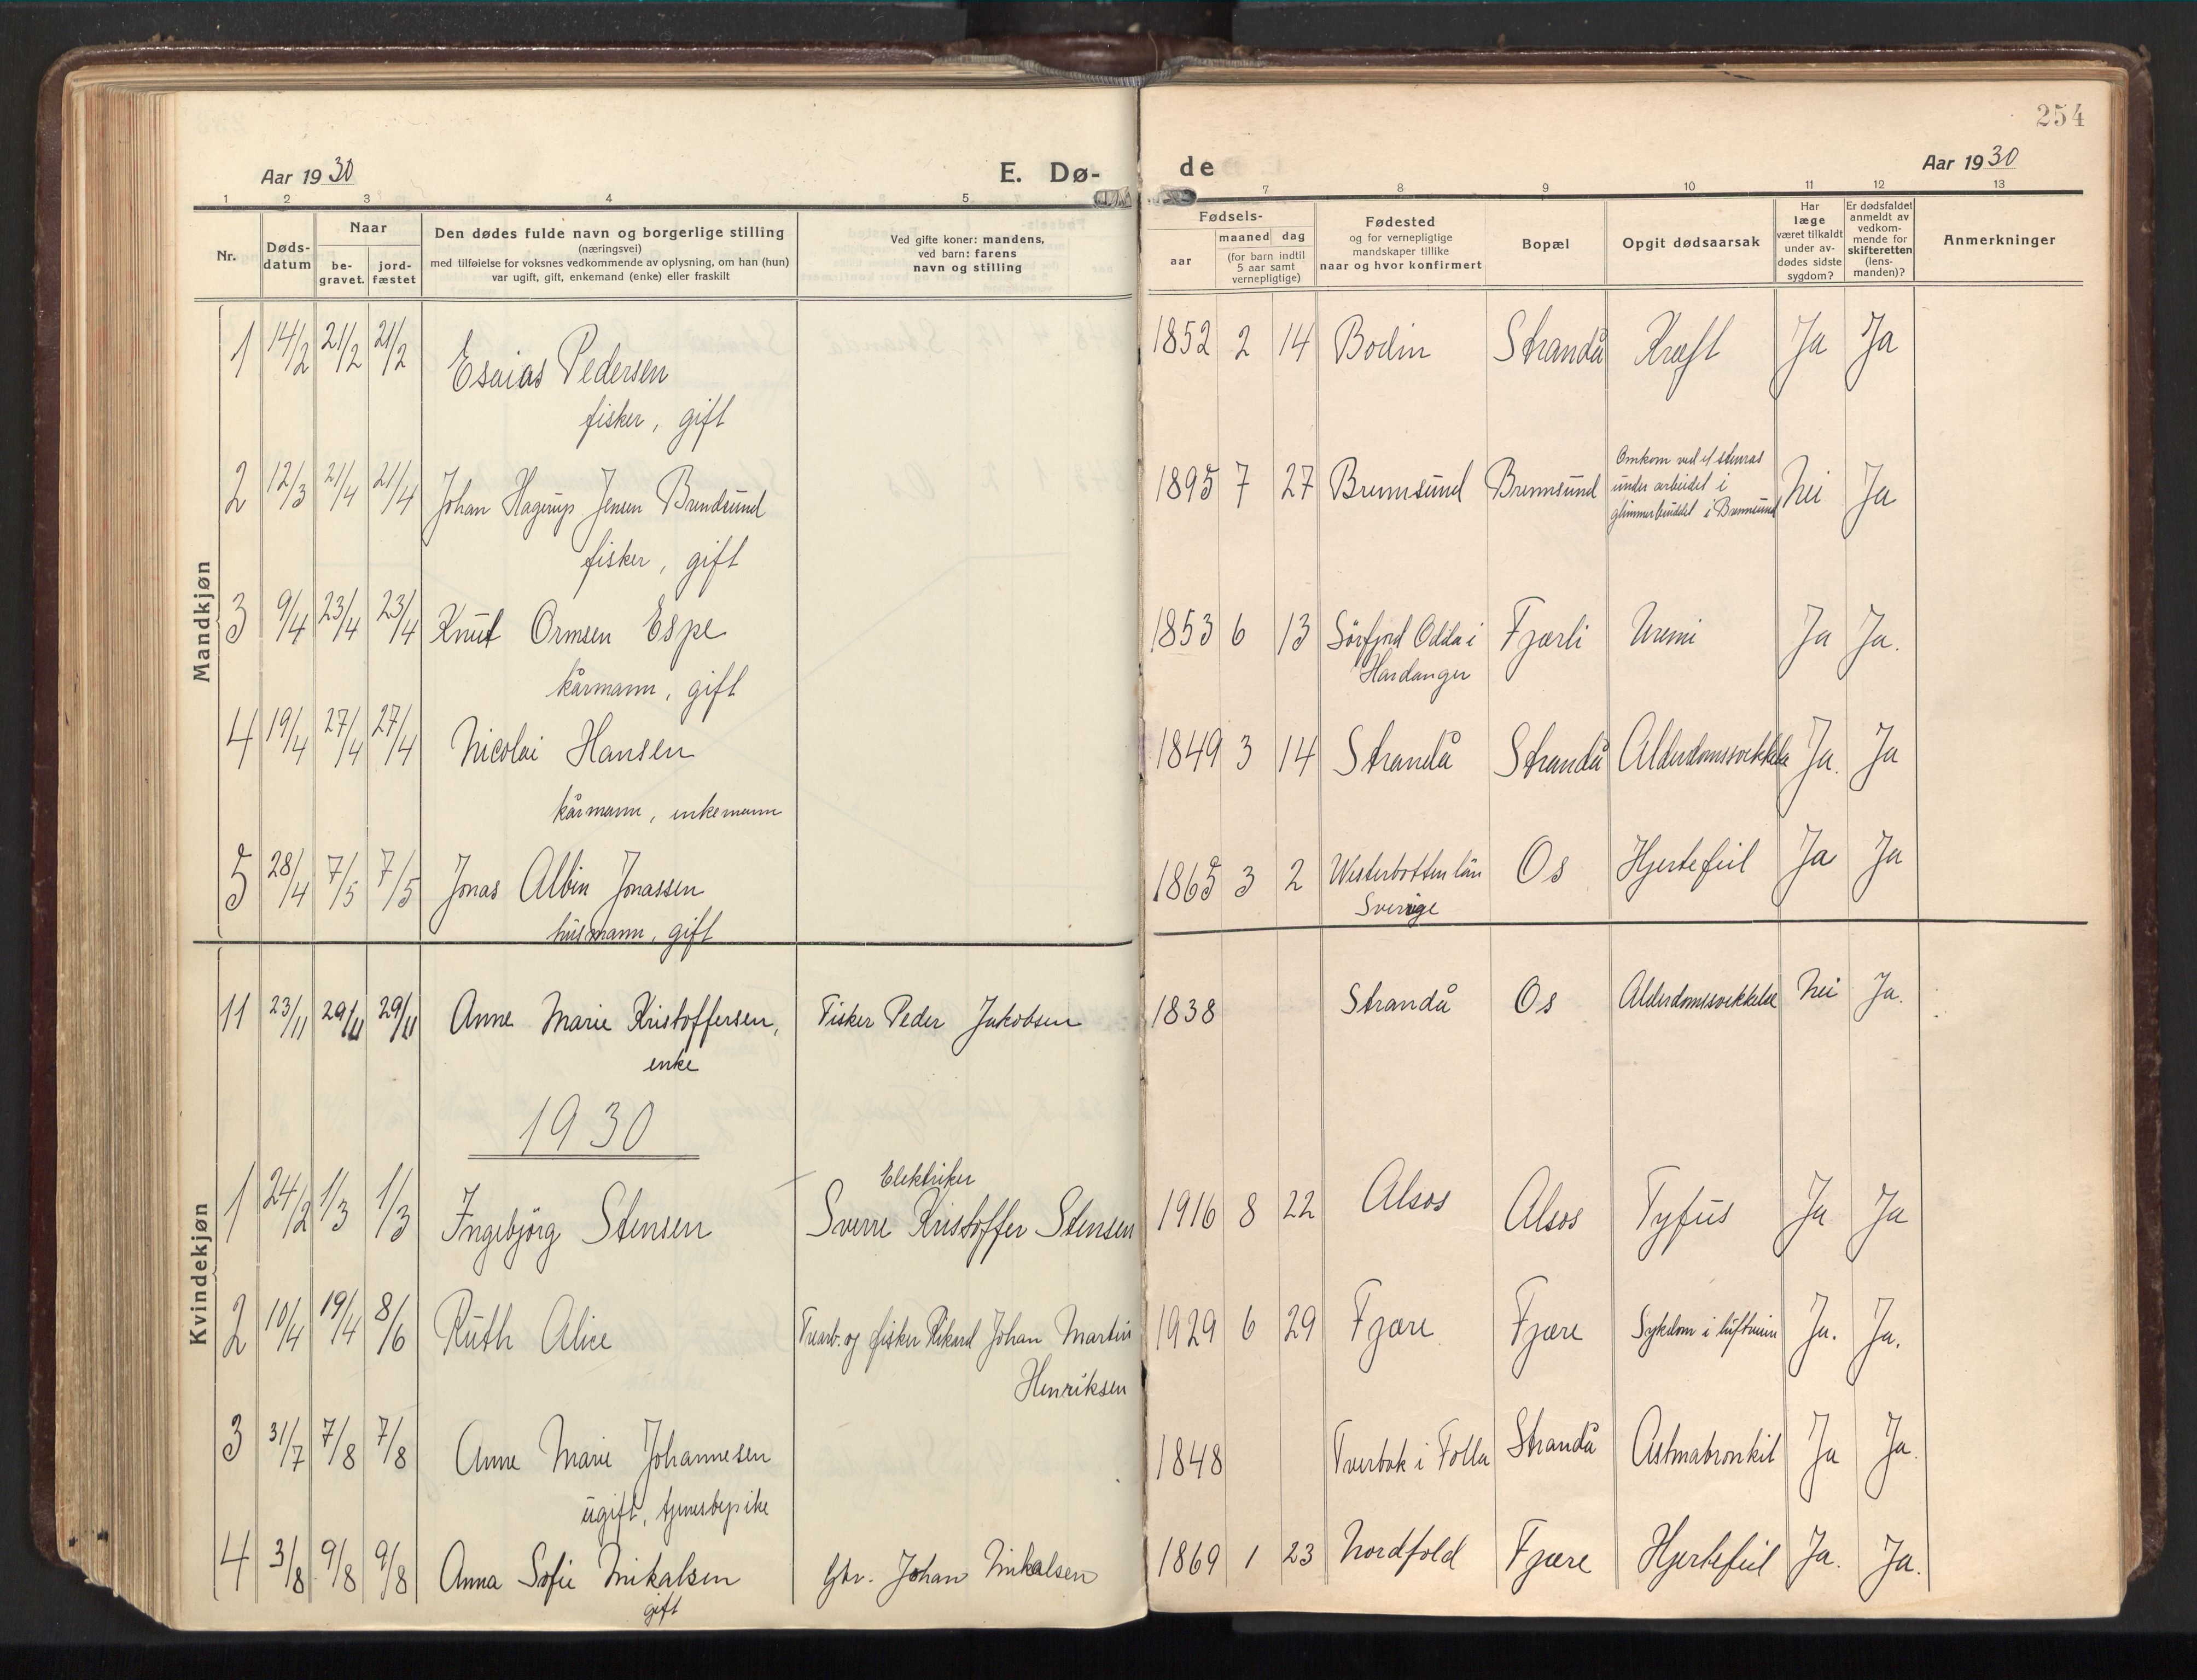 254
Aar 1930
E. Dø-
de
Aar 1930
1 2 3 4 5 7 8 9 10 11 12 13
Nr.
Døds-
datum
Naar
be-
gravet.
jord-
fæstet
Den dødes fulde navn og borgerlige stilling
(næringsvei)
med tilføielse for voksnes vedkommende av oplysning, om han (hun)
var ugift, gift, enkemand (enke) eller fraskilt
Ved gifte koner: mandens,
ved barn: farens
navn og stilling
Fødsels-
aar
maaned dag
(for barn indtil
5 aar samt
vernepligtige)
Fødested
og for vernepligtige
mandskaper tillike
naar og hvor konfirmert
Bopæl
Opgit dødsaarsak
Har
læge
været tilkaldt
under av-
dødes sidste
sygdom?
Er dødsfaldet
anmeldt av
vedkom-
mende for
skifteretten
(lens-
manden)?
Anmerkninger
Mandkjøn
1 14/2 21/2 21/2 Esaias Pedersen 1852 2 14 Bodin Strandå Kræft Ja Ja
fisker, gift
2 12/3 21/4 21/4 Johan Hagerup Jensen Brendsund 1895 7 27 Brennsund Brennsund Omkom ved et stenras Nei Ja
under arbeidet i
glimmerbruddet i Brennsund
fisker, gift
3 9/4 23/4 23/4 Knut Ormsen Espe 1853 6 13 Sörfjord Odda i Fjærli Uremi Ja Ja.
Hardanger
kårmann, gift
4 19/4 27/4 27/4 Nicolai Hansen 1849 3 14 Strandå Strandå Alderdomssvekkelse Ja. Ja
kårmann, enkemann
5 28/4 7/5 7/5 Jonas Albin Jonassen 1865 3 2 Westerbotten län Os Hjertefeil Ja Ja
Sverige
husmann, gift
Kvindekjøn
11 23/11 29/11 29/11 Anne Marie Kristoffersen, Fisker Peder Jakobsen 1838 Strandå Os Alderdomssvekkelse Nei Ja.
enke
1930
Elektriker
1 24/2 1/3 1/3 Ingebjörg Stensen Sverre Kristoffer Stensen 1916 8 22 Alsos Alsos Tyfus Ja Ja
2 10/4 19/4 8/6 Ruth Alice Trearb. og fisker Rikard Johan Martin 1929 6 29 Fjære Fjære Sykdom i luftveien Ja. Ja.
Henriksen
3 31/7 7/8 7/8 Anne Marie Johannesen 1848 Tverbak i Folla Strandå Astmabronkit Ja Ja.
ugift, tjenestepike
4 3/8 9/8 9/8 Anna Sofie Mikalsen Gbr. Johan Mikalsen 1869 1 23 Nordfold Fjære Hjertefeil Ja. Ja.
gift